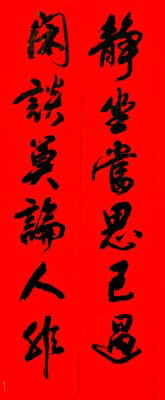 靜坐當思己過
閑談莫論人非